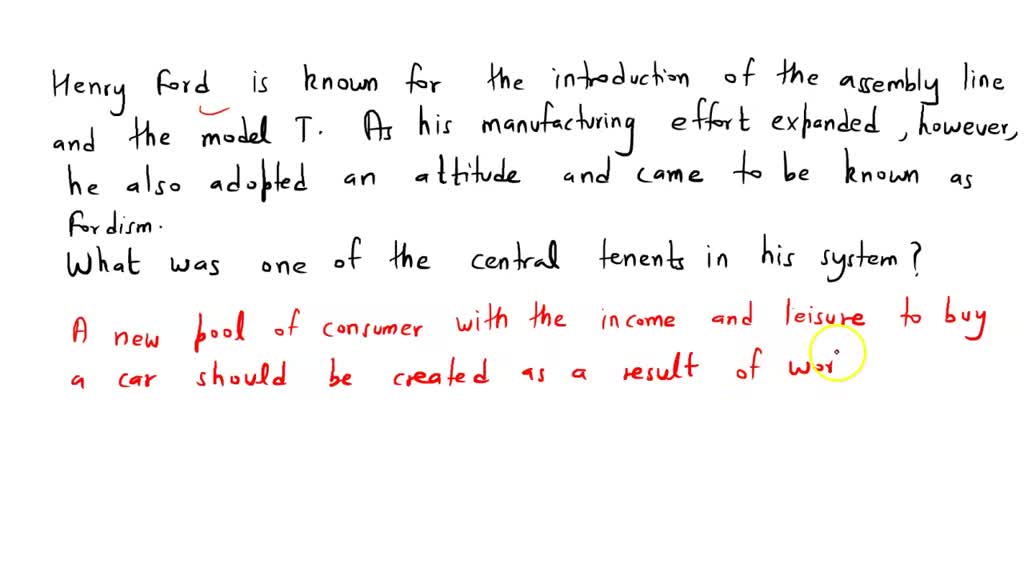 Henry Ford is known for the introduction of the assembly line
and the model T. As his manufacturing effort expanded, however,
he also adopted an attitude and came to be known as
fordism.
What was one of the central tenents in his system?
A new pool of consumer with the income and leisure to buy
a car should be created as a result of wor